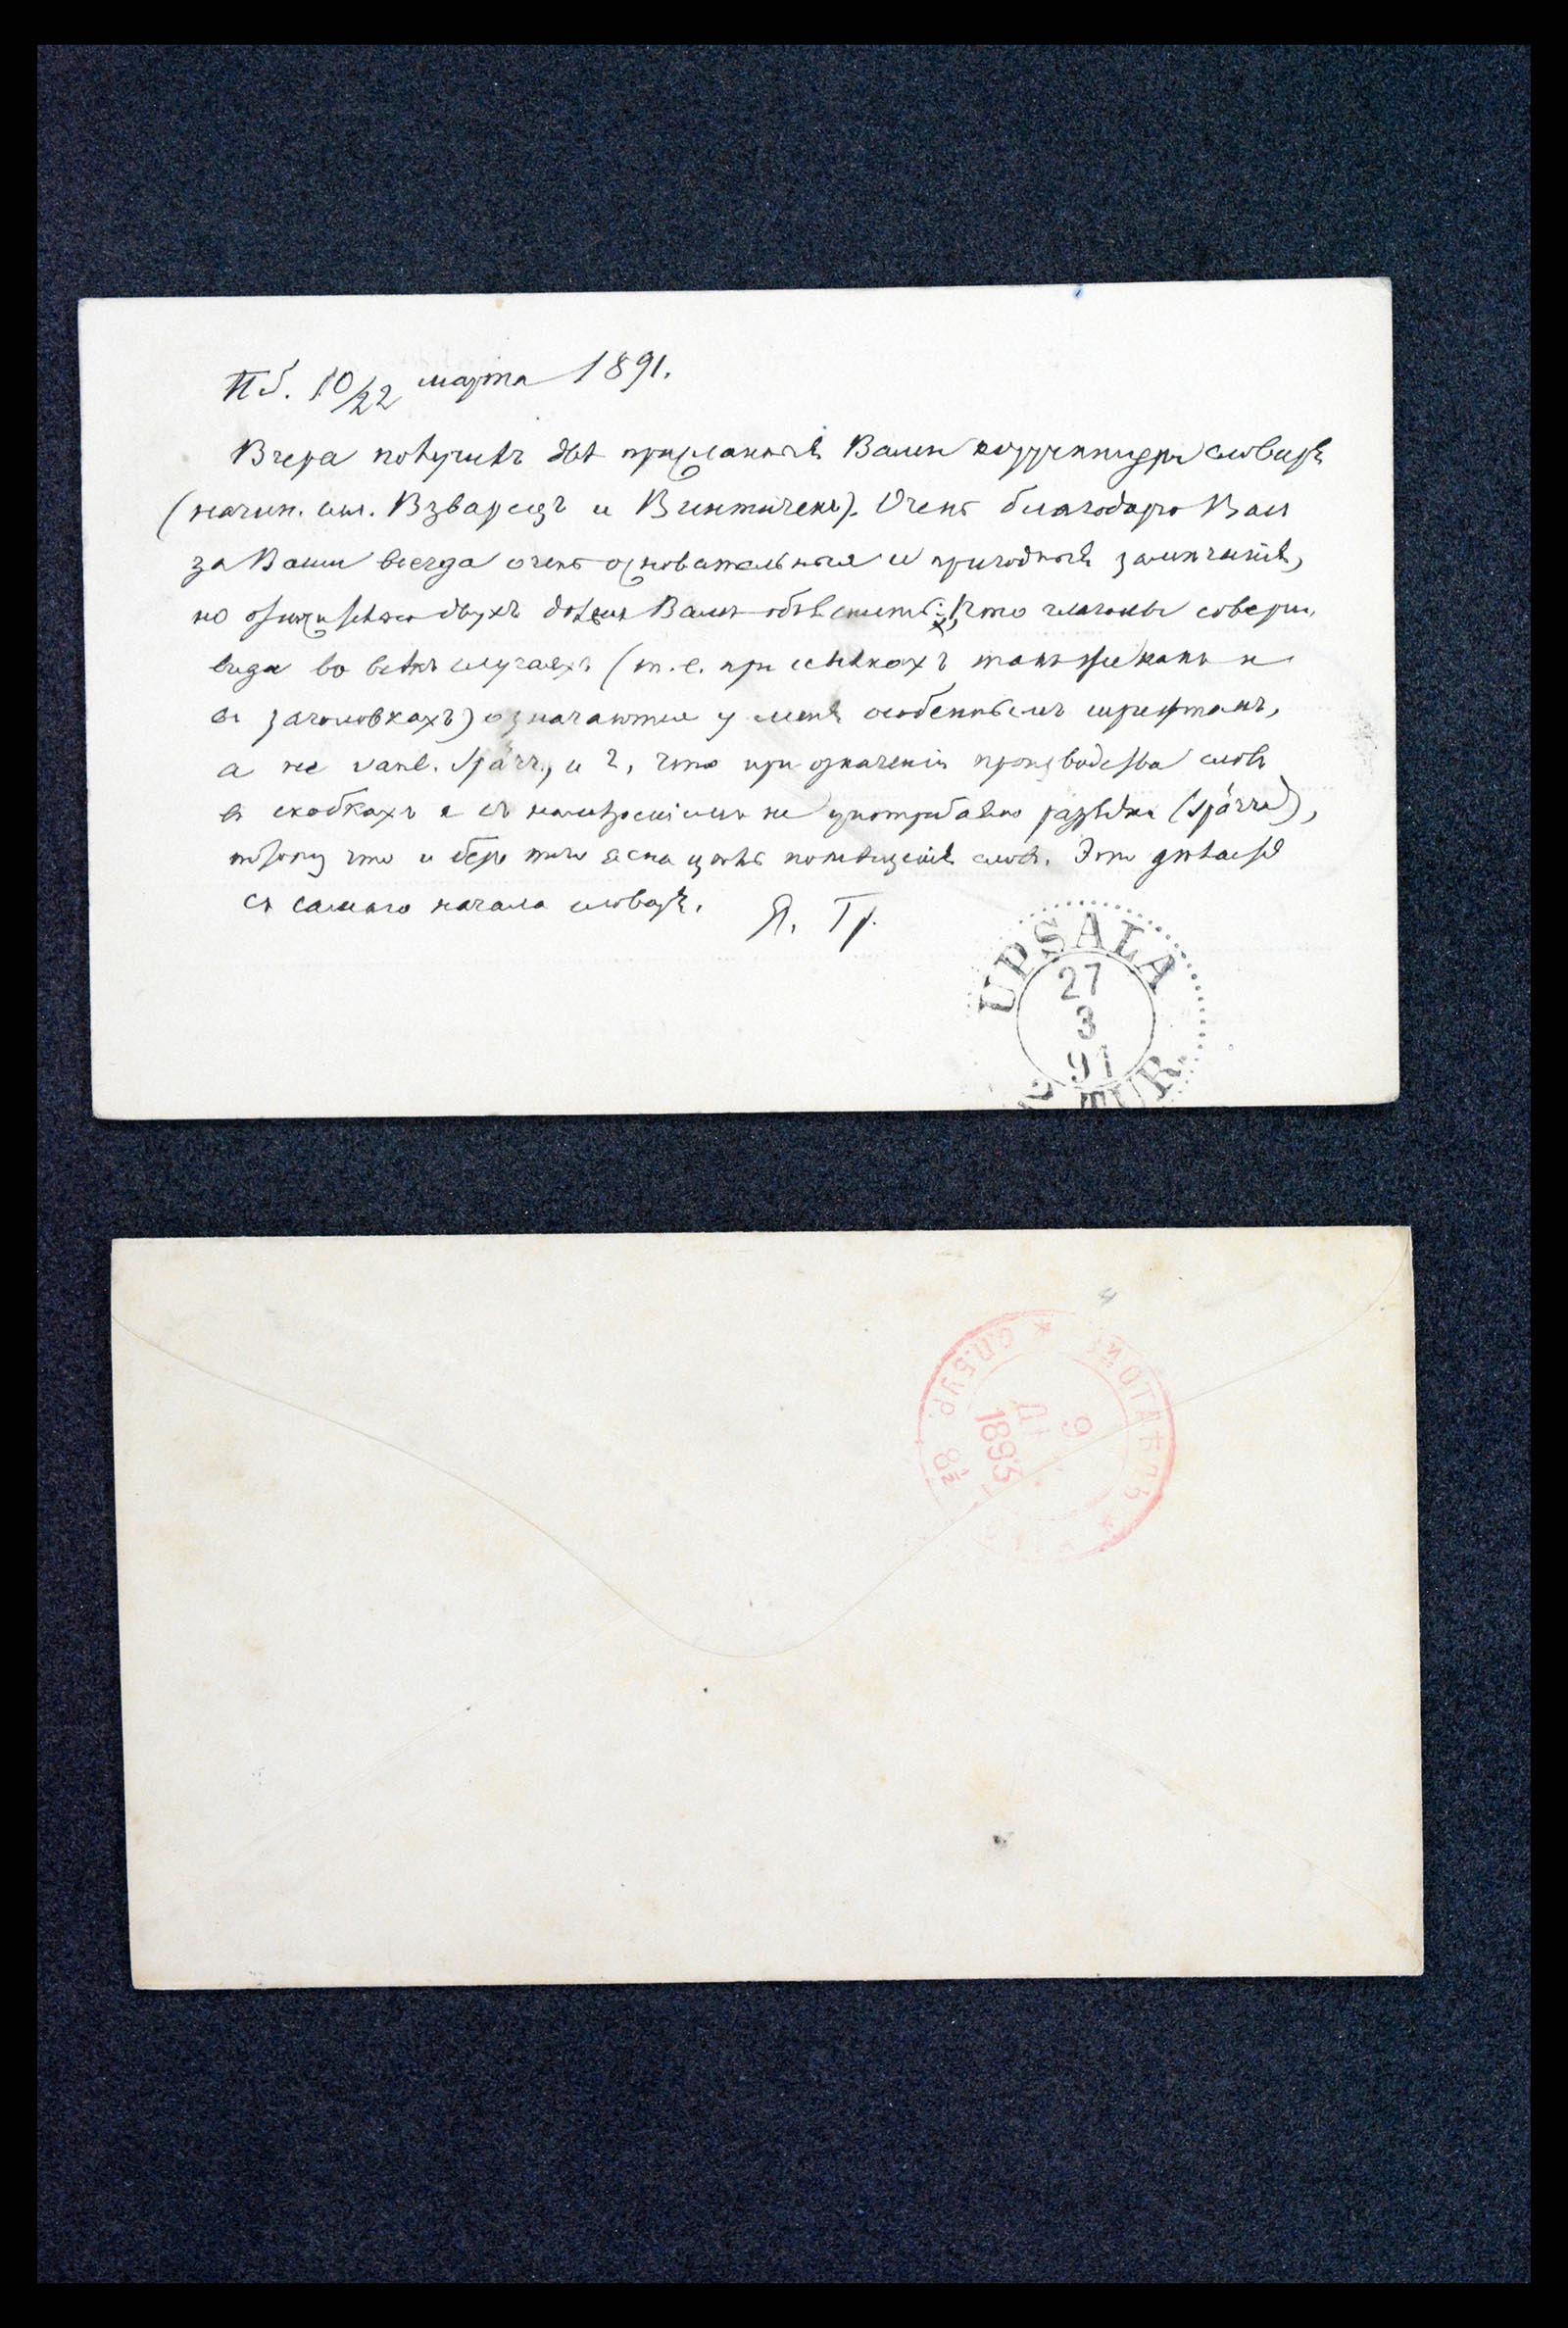 Пб. 10/22 марта 1891.
Вчера получилъ двѣ присланныя Вами корректуры словаря
(начин. сл. Взварецъ и Винтиченъ). Очень благодарю Вас
за Ваши всегда очень основательныя и пригодныя замѣчанія,
но двухъ Вамъ объяснить: что глаголы соверш.
вида во всѣхъ случаяхъ (т. е. при ссылкахъ такъ же какъ и
въ заголовкахъ) означаются у меня особеннымъ шрифтомъ,
а не vanl. spärr., и 2, что при означеніи производства словъ
въ скобкахъ я съ намѣреніемъ не употребляю разрядки (spärrad),
потому что и безъ того ясна цѣль помѣщенія словъ. Это дѣлается
съ самаго начала словаря.
Я. Гр.
UPSALA
27
3
91
TUR.
С.П.БУР.
ОТДѢЛЪ
9
1893